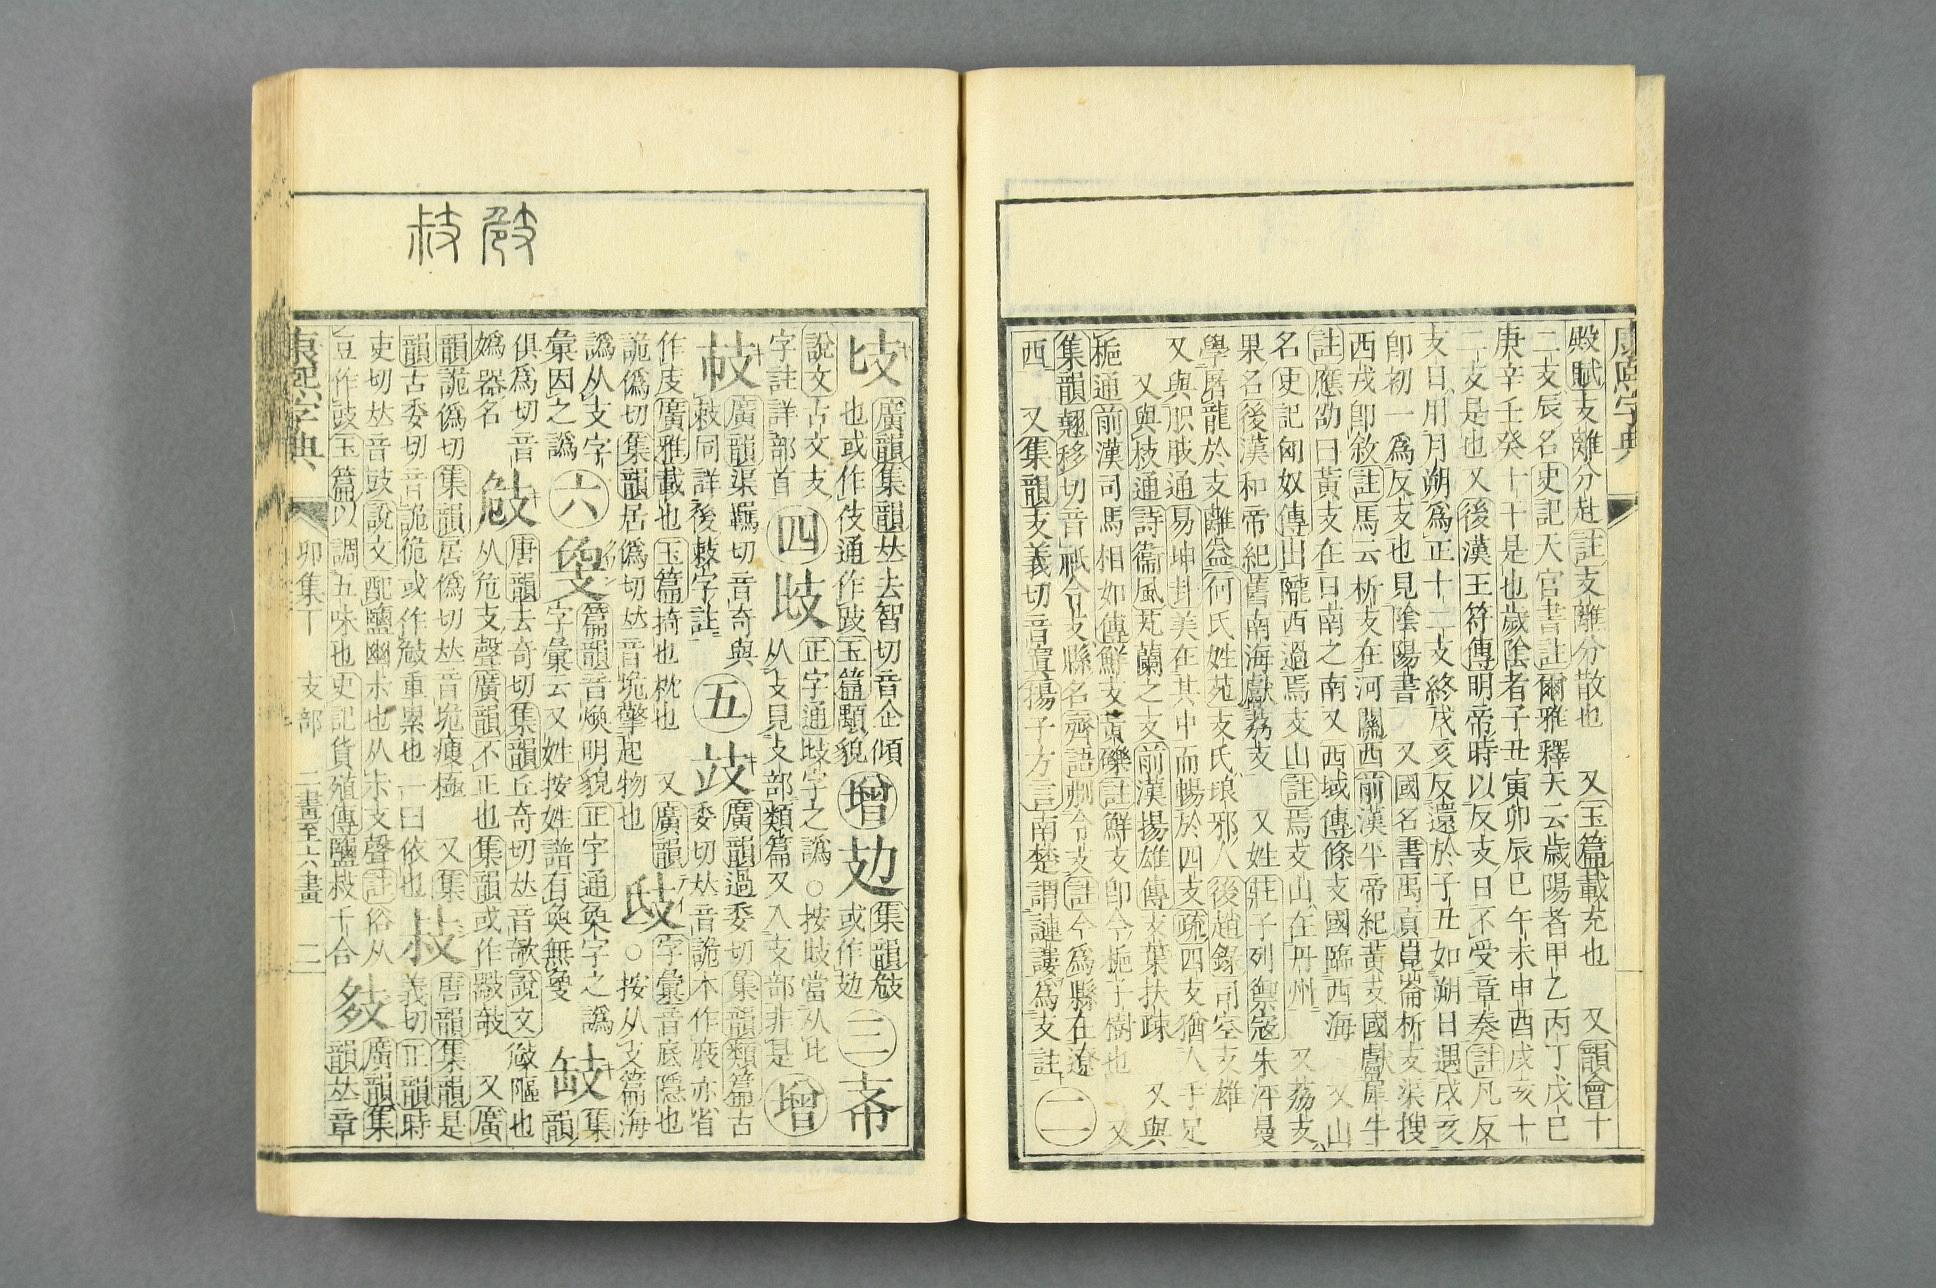 康熙字典
殿賦支離分赴註支離分散也 又玉篇載充也 又韻會十
二支辰名史記天官書註爾雅釋天云歲陽者甲乙丙丁戊巳
庚辛壬癸十干是也歲陰者子丑寅卯辰巳午未申酉戌亥十
二支是也又後漢王符傳明帝時以反支日不受章奏註凡反
支日用月朔爲正十二支終戌亥反還於子丑如朔日遇戌亥
卽初一爲反支也見陰陽書 又國名書禹貢崑崙析支渠搜
西戎卽敘註馬云析支在河關西前漢平帝紀黃支國獻犀牛
註應劭曰黃支在日南之南又西域傳條支國臨西海 又山
名史記匈奴傳出隴西過焉支山註焉支山在丹州 又荔支
果名後漢和帝紀舊南海獻荔支 又姓莊子列禦寇朱泙曼
學屠龍於支離益何氏姓苑支氏琅邪人後趙錄司空支雄
又與胑通易坤卦美在其中而暢於四支疏四支猶人手足
又與枝通詩衞風芄蘭之支前漢揚雄傳支葉扶疎 又與
梔通前漢司馬相如傳鮮支黃礫註鮮支卽今梔子樹也 又
集韻翹移切音祇令支縣名齊語刜令支註今爲縣在遼
西 又集韻支義切音寘揚子方言南楚謂謰謱爲支註 二
攱
廣韻集韻𠀤去智切音企傾
也或作伎通作跂玉篇顒貌
增
集韻攰
或作
三
說文古文支
字註詳部首
四
歧
正字通歧字之譌○按歧當从止
从支見支部類篇又入支部非是
增
攲
廣韻渠羈切音奇與
攲同詳後攲字註
五
廣韻過委切集韻類篇古
委切𠀤音詭本作庪亦省
作庋廣雅載也玉篇掎也枕也 又廣韻
詭僞切集韻居僞切𠀤音垝擎起物也
字彙音底隱也
○按从攴篇海
譌从支字
彙因之譌
六
篇韻音煥明貌正字通奐字之譌
字彙云又姓按姓譜有奐無
集韻
俱爲切音
嬀器名
攰
唐韻去奇切集韻丘奇切𠀤音欹說文攲䧢也
从危支聲廣韻不正也集韻或作 又廣
韻詭僞切集韻居僞切𠀤音垝瘦極 又集
韻古委切音詭佹或作攰重累也一曰依也
唐韻集韻是
義切正韻時
吏切𠀤音豉說文配鹽幽尗也从尗支聲註俗从
豆作豉玉篇以調五味也史記貨殖傳鹽豉千合
廣韻集
韻𠀤章
康熙字典 卯集下 支部 二畫至六畫 二